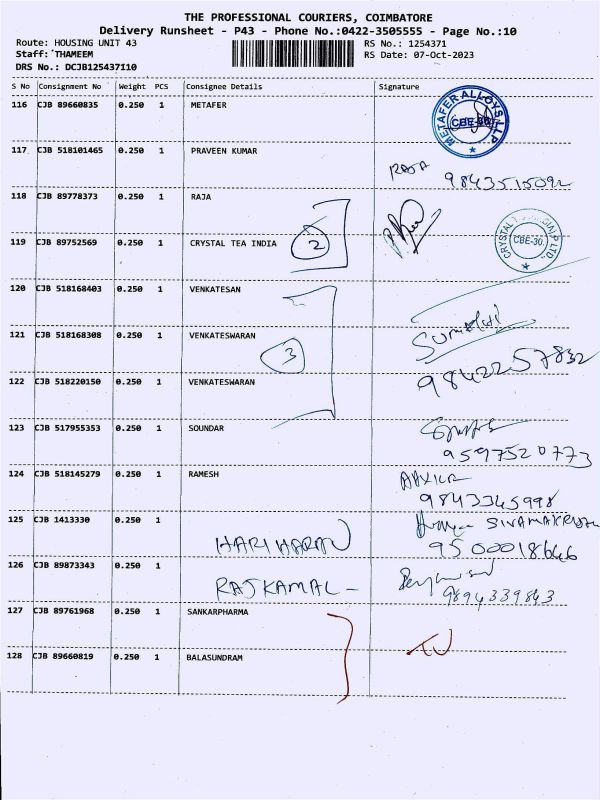 THE PROFESSIONAL COURIERS, COIMBATORE
Delivery Runsheet - P43 - Phone No.:0422-3505555 - Page No.:10
Route: HOUSING UNIT 43 RS No.: 1254371
Staff: THAMEEM RS Date: 07-Oct-2023
DRS No.: DCJB125437110
S No Consignment No Weight PCS Consignee Details Signature
116 CJB 89660835 0.250 1 METAFER
METAFER ALLOYS LLP
117 CJB 518101465 0.250 1 PRAVEEN KUMAR
9843515092
118 CJB 89778373 0.250 1 RAJA
119 CJB 89752569 0.250 1 CRYSTAL TEA INDIA 2 CBE-30.
120 CJB 518168403 0.250 1 VENKATESAN
121 CJB 518168308 0.250 1 VENKATESWARAN
3
9842257832
122 CJB 518220150 0.250 1 VENKATESWARAN
123 CJB 517955353 0.250 1 SOUNDAR
9597520773
124 CJB 518145279 0.250 1 RAMESH
9843345998
125 CJB 1413330 0.250 1
HARIHARAN 9500018646
126 CJB 89873343 0.250 1
RAJKAMAL - 9894339843
127 CJB 89761968 0.250 1 SANKARPHARMA
128 CJB 89660819 0.250 1 BALASUNDRAM